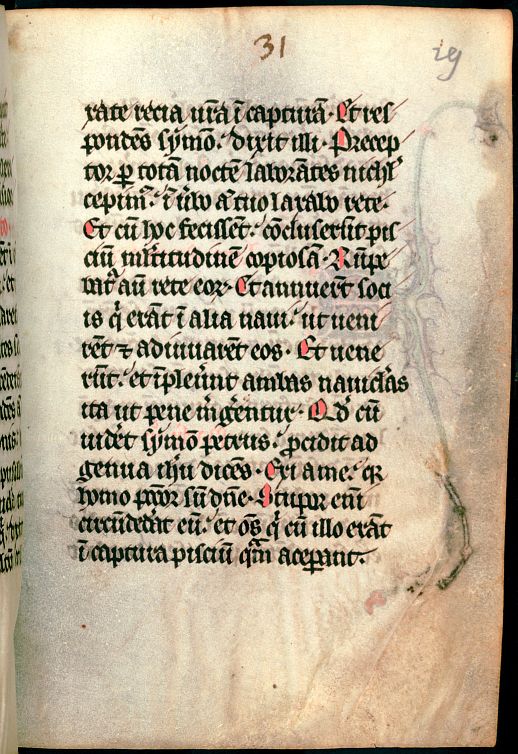 31
29
xate recia ur̄a ī capturā. Et res
pondēs sȳmō. dixit illi. Precep
tor ꝑ totā noctē laborātes nichł
cepim̄. ī ūbo aūt tuo laxabo rete.
Et cū hoc fecissēt. cōcluserūt pis
ciū multitudinē copiosā. Rūpe
bat̄ aūt rete eoꝝ. Et annuerūt soci
is q̇ erāt ī alia naui. ut ueni
rēt ⁊ adiuuarēt eos. Et uene
rūt. et īpleuīnt ambas nauiclas
ita ut pene m̄gerentur. Qd̄ cū
uidēt sȳmō petrus. ꝓcidit ad
genua ihū dicēs. Exi a me. qꝛ
homo pctōr sū dn̄e. Stupor enī
circūdedāt eū. et om̄s q̇ cū illo erāt
ī captura pisciū qm̄ aceperant.